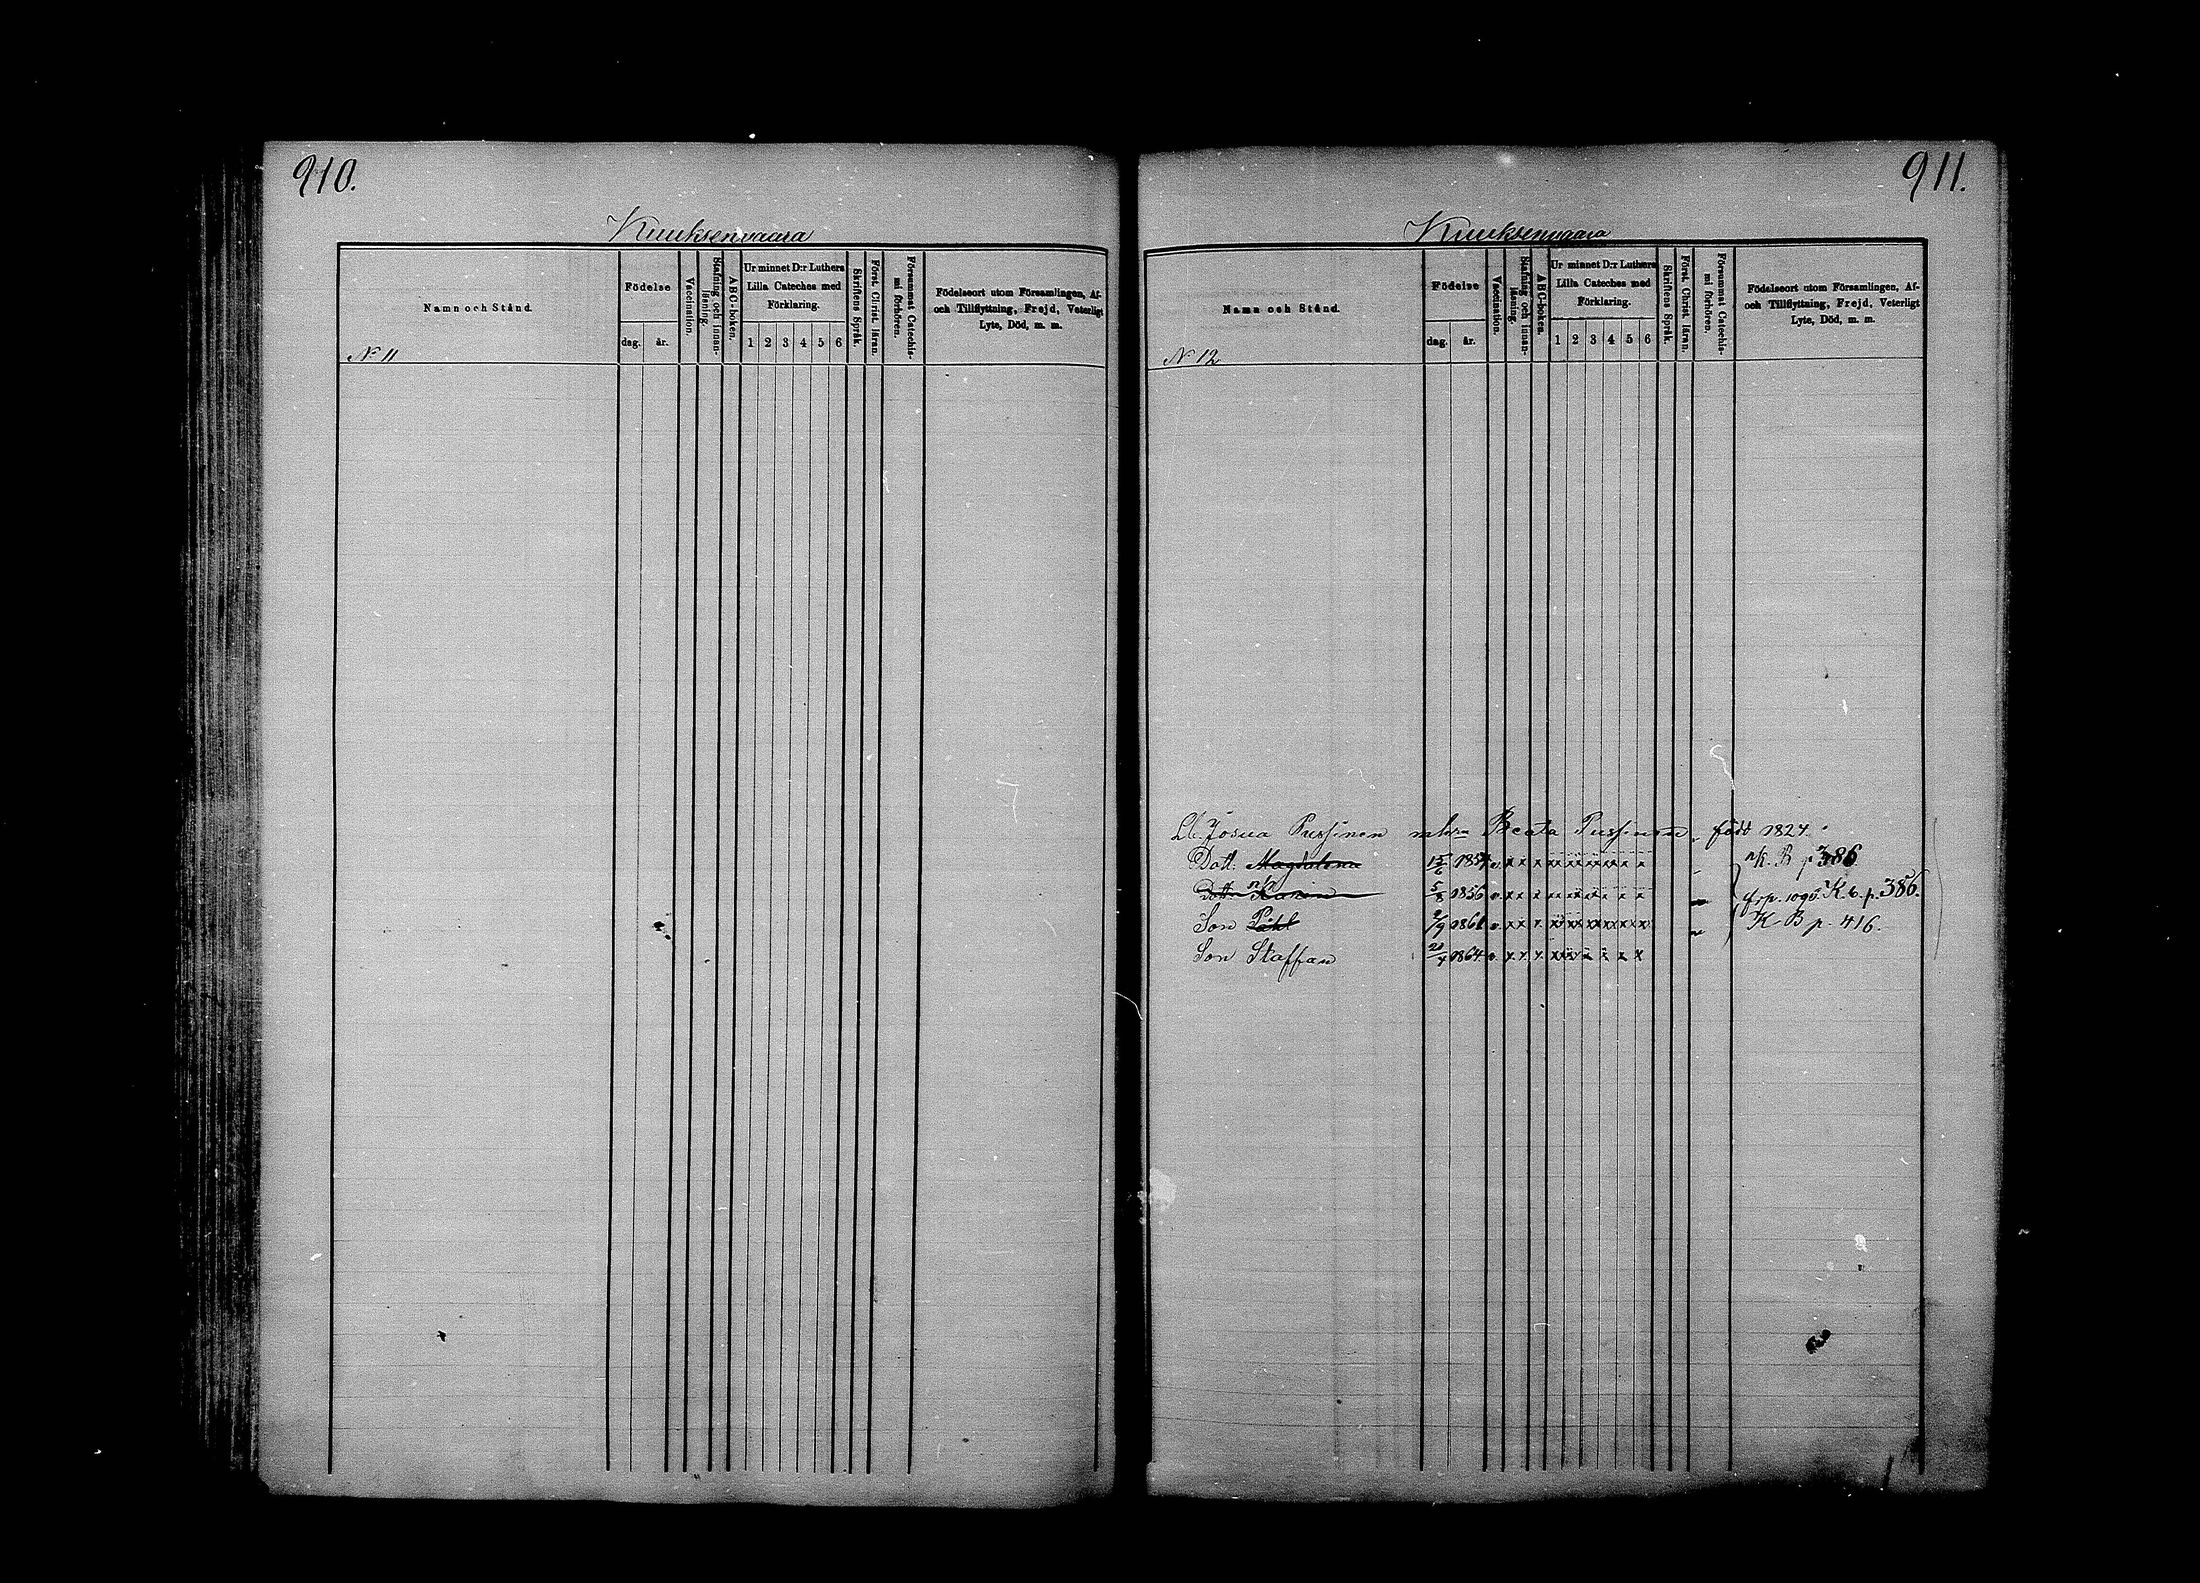 910.
Kuuksenvaara
Namn och Stånd.
Födelse
dag. år.
Vaccination.
Stafning och innan-läsning.
ABC-boken.
Ur minnet D:r Luthers
Lilla Cateches med
Förklaring.
1 2 3 4 5 6
Skriftens Språk.
Först. Christ. läran.
Försummat Catechis-mi förhören.
Födelseort utom Församlingen, Af-
och Tillflyttning, Frejd, Veterligt
Lyte, Död, m. m.
N 11
911.
Kuuksenvaara
Namn och Stånd.
Födelse
dag. år.
Vaccination.
Stafning och innan-läsning.
ABC-boken.
Ur minnet D:r Luthers
Lilla Cateches med
Förklaring.
1 2 3 4 5 6
Skriftens Språk.
Först. Christ. läran.
Försummat Catechis-mi förhören.
Födelseort utom Församlingen, Af-
och Tillflyttning, Frejd, Veterligt
Lyte, Död, m. m.
N 12
Josua Pussinen Beata Pussinen född 1824.
Dott. Magdalena 15/6 1854 v. x x x K. B p 386
Dott. Karin 5/8 1856 v. x x x frp. 1095 K. b. p. 386.
Son Påhl 2/9 1861 v. x x x K B p. 416.
Son Staffan 20/4 1864 v. x x x